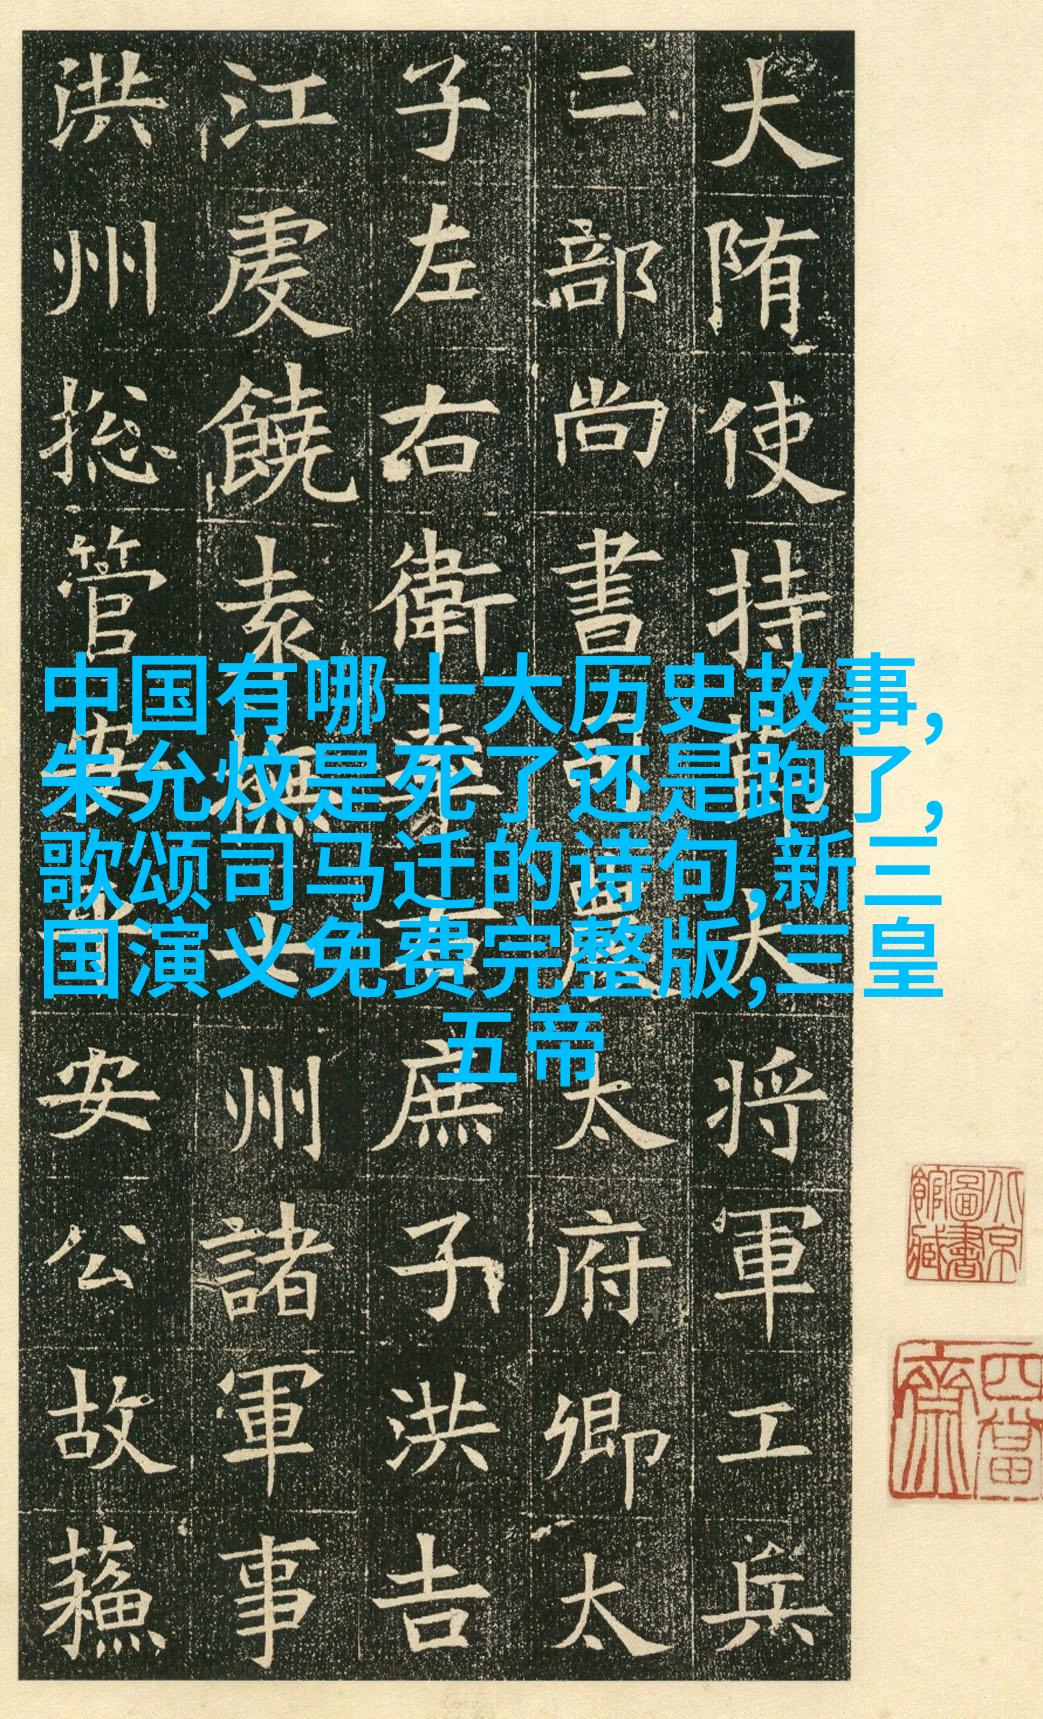 大陏使持節大将軍工兵
二部尚書司農太府卿太
子左右衛率右庶子洪吉
江虔饒袁撫七州諸軍事
洪州総管安公故蘇
中国有哪十大历史故事,
朱允炆是死了还是跑了,
歌颂司马迁的诗句,新三
国演义免费完整版,三皇
五帝
北京圖書館藏